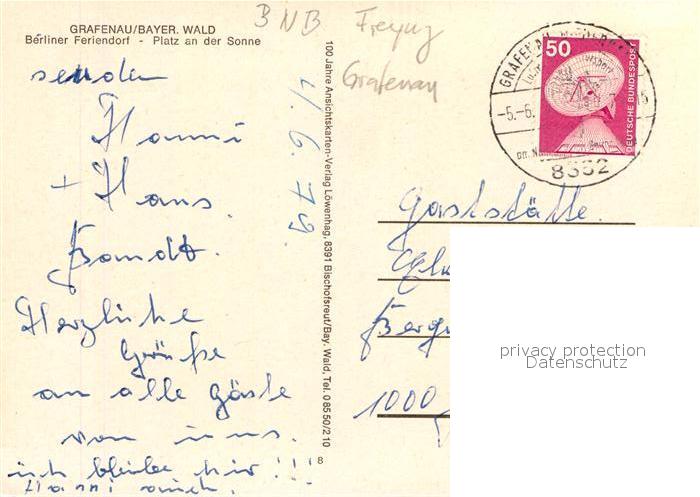 GRAFENAU/BAYER. WALD
Berliner Feriendorf - Platz an der Sonne
BNB Freyung
Grafenau
senden
Hanni
+ Hans
Herzliche
Grüße
an alle Gäste
von uns.
ich bleibe hir !!!
Hanni auch.
4.6.79.
100 Jahre Ansichtskarten-Verlag Löwenhag, 8391 Bischofsreut/Bay. Wald, Tel. 08550/210
8
50
DEUTSCHE BUNDESPOST
GRAFENAU
-5.-6.
8352
Gaststätte
1000
privacy protection
Datenschutz